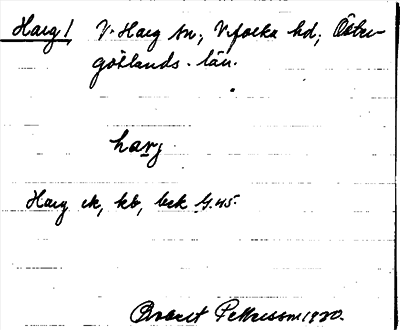 Harg 1, V. Harg sn; Vifolka hd; Öster-
götlands. län.
harj
Harg ek, kb, bsk G.45.
Robert Pettersson 1930.